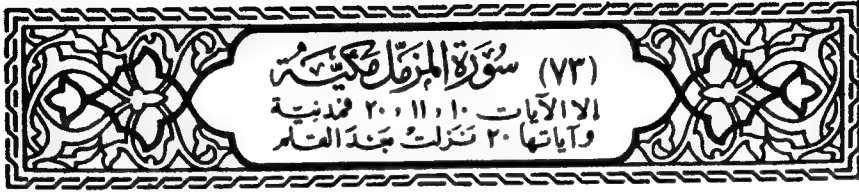 (٧٣) سُورَة المزمّل مكيّة
إلا الآيات ١٠ ، ١١ ، ٢٠ فمدنية
وآياتها ٢٠ نزلت بعد القلم